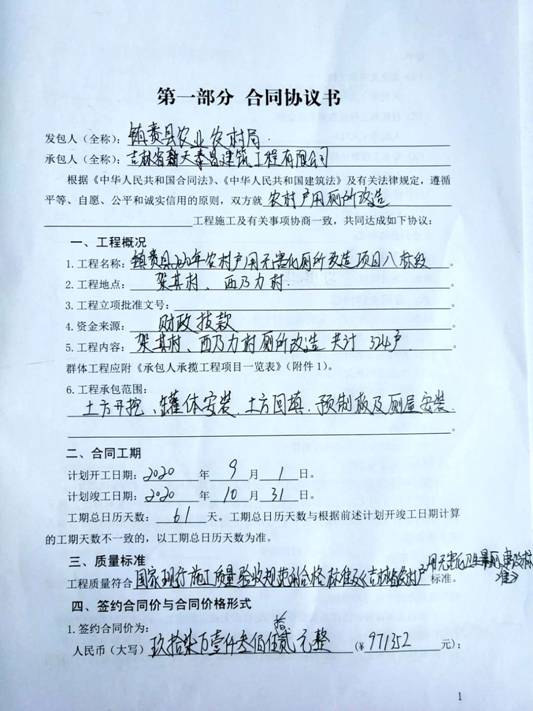 第一部分 合同协议书
发包人（全称）：镇赉县农业农村局
承包人（全称）：吉林省新天泰岩建筑工程有限公司
根据《中华人民共和国合同法》、《中华人民共和国建筑法》及有关法律规定，遵循
平等、自愿、公平和诚实信用的原则，双方就 农村户用厕所改造
工程施工及有关事项协商一致，共同达成如下协议：
一、工程概况
1. 工程名称：镇赉县2020年农村户用无害化厕所改造项目八标段。
2. 工程地点：架其村、西乃力村。
3. 工程立项批准文号：。
4. 资金来源：财政拨款。
5. 工程内容：架其村、西乃力村厕所改造 共计 324户。
群体工程应附《承包人承揽工程项目一览表》（附件1）。
6. 工程承包范围：
土方开挖、罐体安装、土方回填、预制板及厕屋安装
。
二、合同工期
计划开工日期：2020年9月1日。
计划竣工日期：2020年10月31日。
工期总日历天数：61天。工期总日历天数与根据前述计划开竣工日期计算
的工期天数不一致的，以工期总日历天数为准。
三、质量标准
工程质量符合国家现行施工质量验收规范的合格标准及《吉林省农村户用无害化卫生厕所建设标准》标准。
四、签约合同价与合同价格形式
1. 签约合同价为：
人民币（大写）玖拾柒万壹仟叁佰伍拾贰元整（¥971352元）；
1